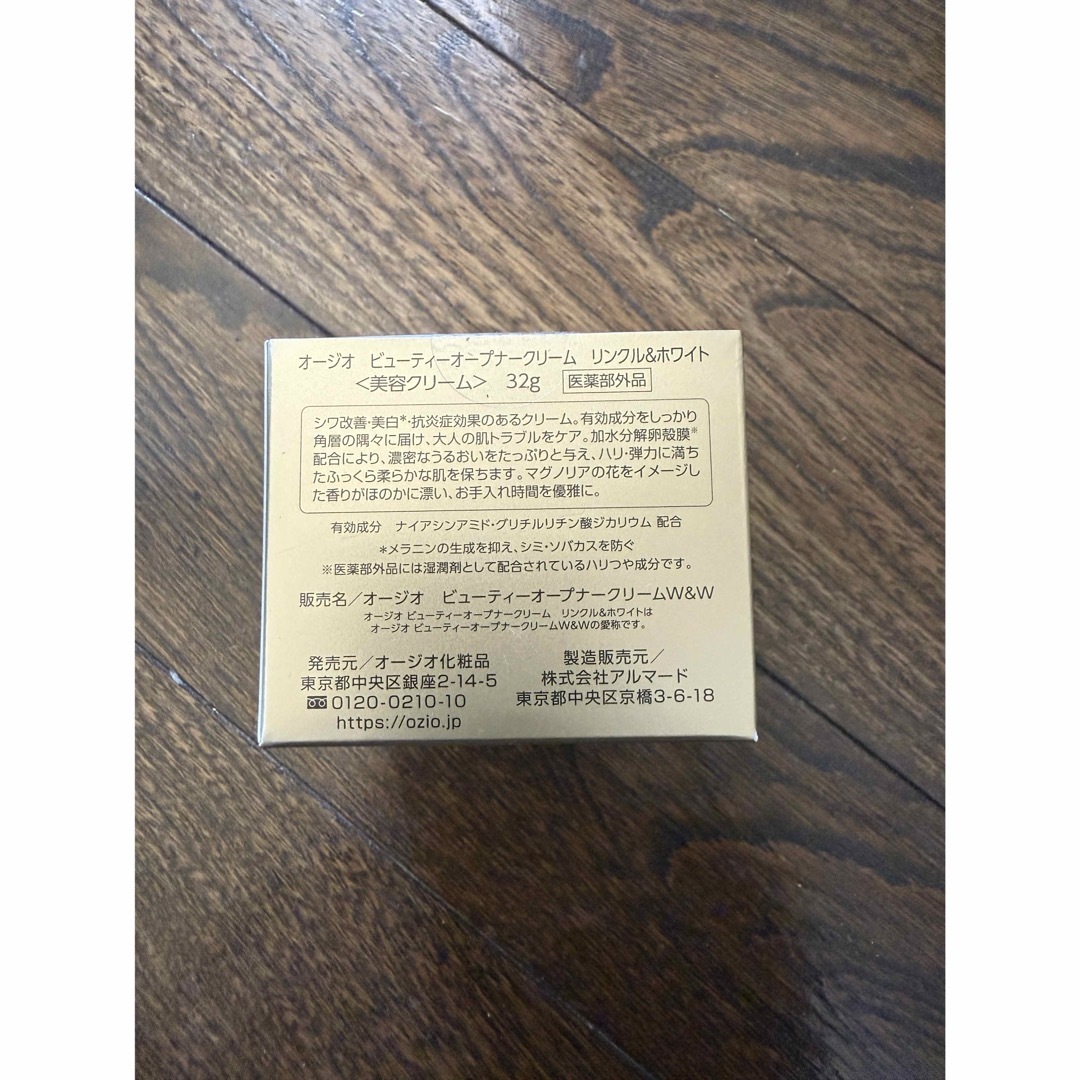 オージオ ビューティーオープナークリーム リンクル&ホワイト
＜美容クリーム＞ 32g 医薬部外品
シワ改善・美白*・抗炎症効果のあるクリーム。有効成分をしっかり
角層の隅々に届け、大人の肌トラブルをケア。加水分解卵殻膜※
配合により、濃密なうるおいをたっぷりと与え、ハリ・弾力に満ち
たふっくら柔らかな肌を保ちます。マグノリアの花をイメージし
た香りがほのかに漂い、お手入れ時間を優雅に。
有効成分 ナイアシンアミド・グリチルリチン酸ジカリウム 配合
*メラニンの生成を抑え、シミ・ソバカスを防ぐ
※医薬部外品には湿潤剤として配合されているハリつや成分です。
販売名／オージオ ビューティーオープナークリームW&W
オージオ ビューティーオープナークリーム リンクル&ホワイトは
オージオ ビューティーオープナークリームW&Wの愛称です。
発売元／オージオ化粧品
東京都中央区銀座2-14-5
0120-0210-10
https://ozio.jp
製造販売元／
株式会社アルマード
東京都中央区京橋3-6-18